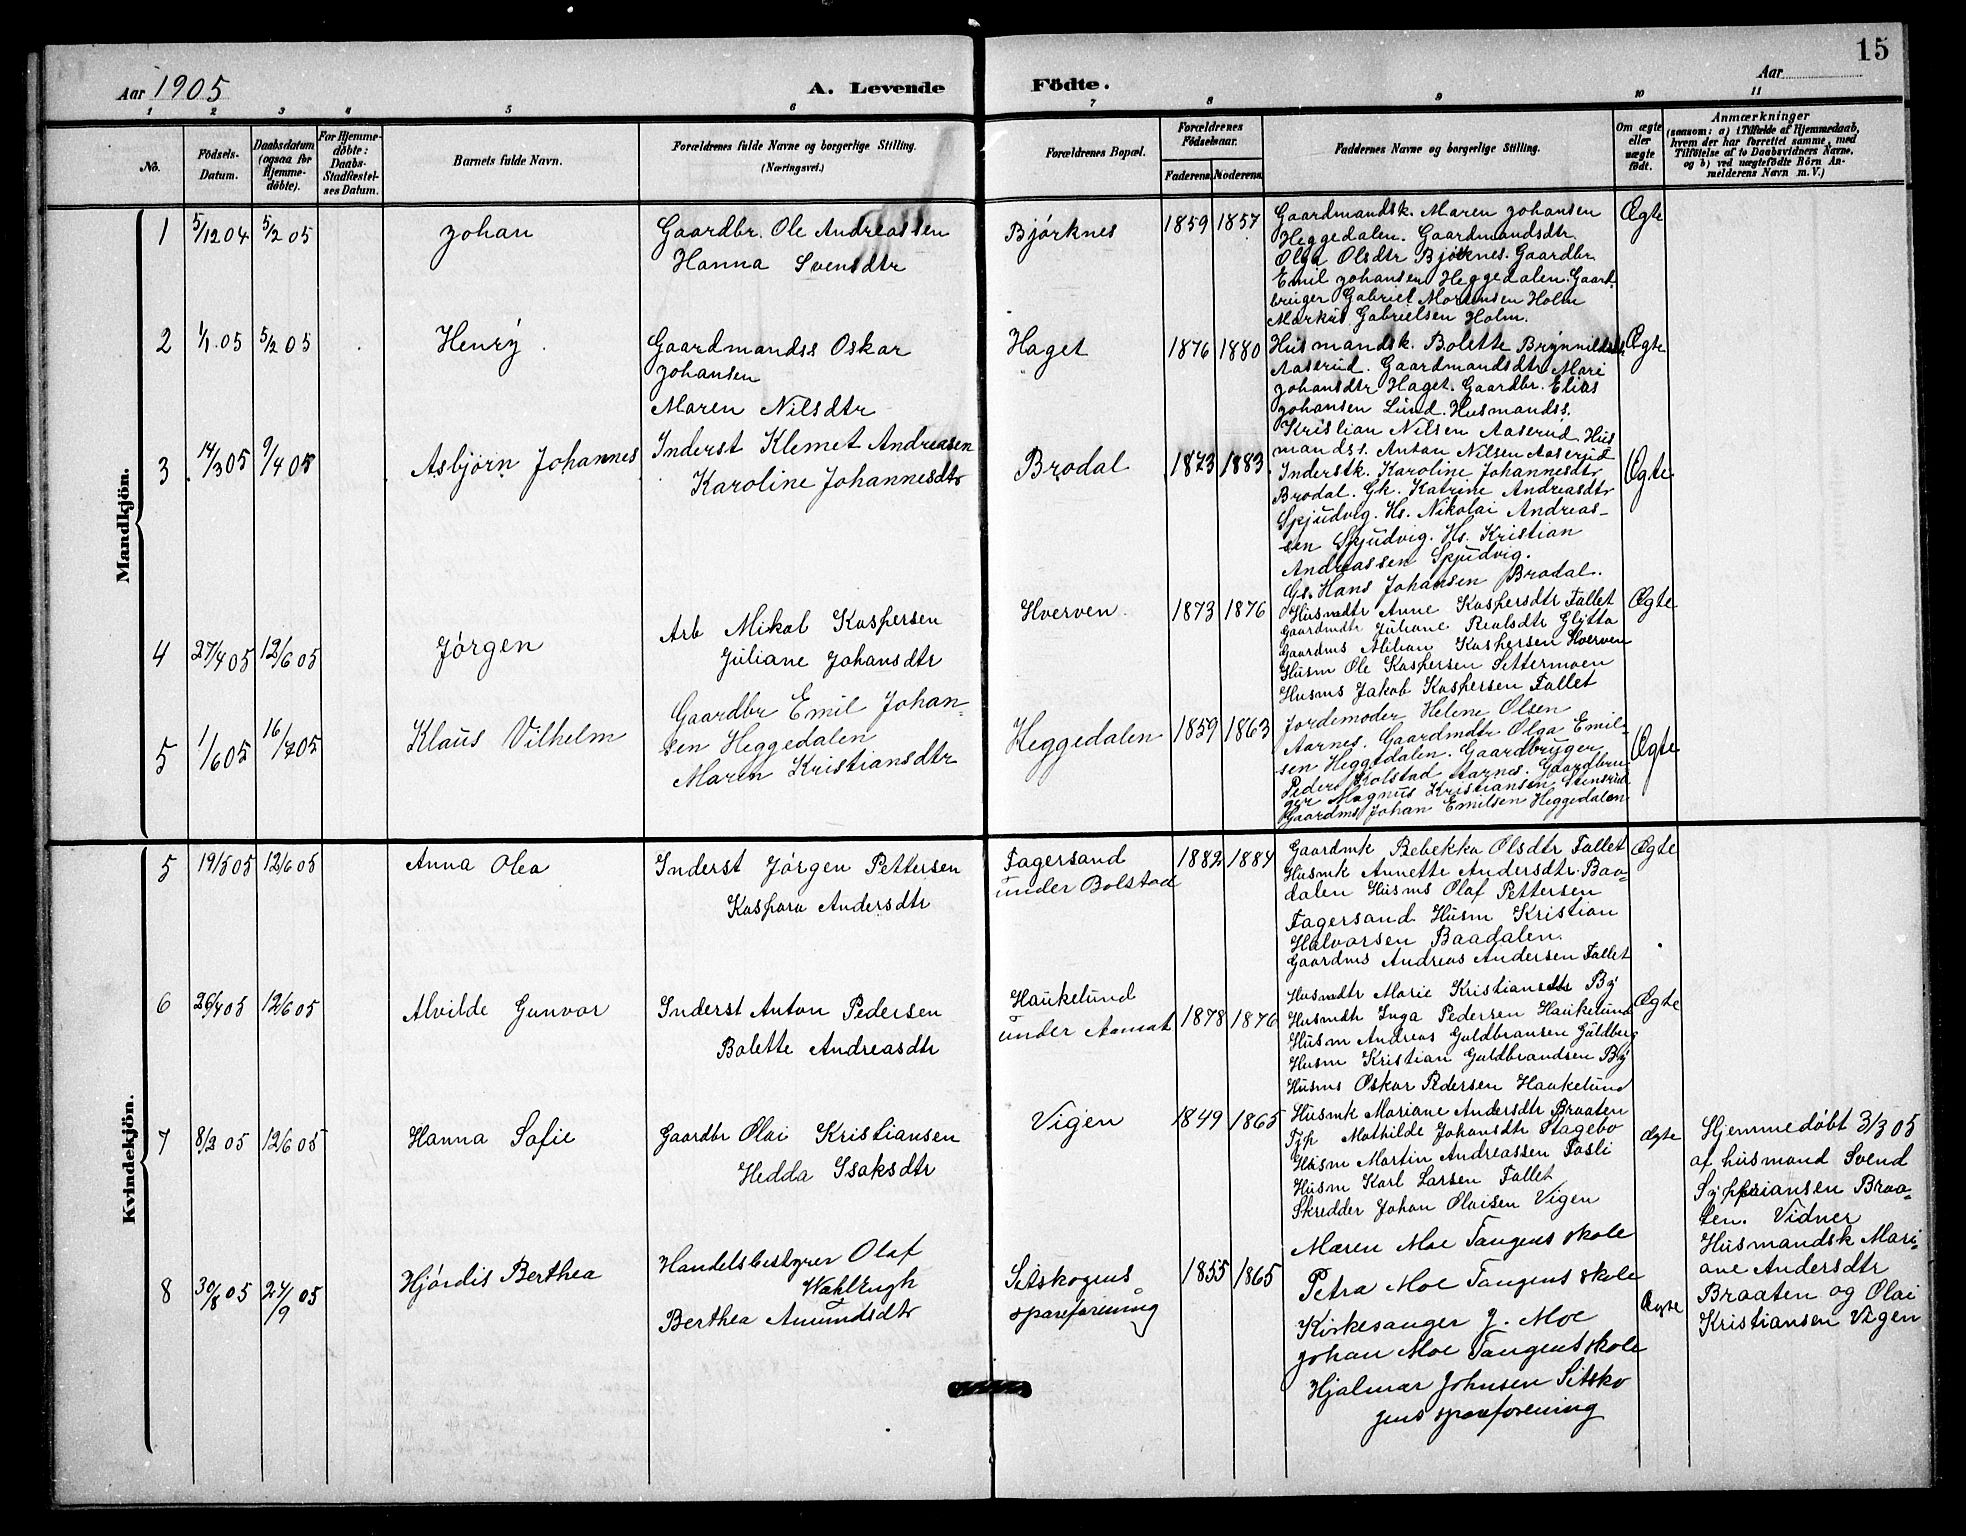 15
Aar 1905
A. Levende Födte.
Aar
1 2 3 4 5 6 7 8 9 10 11
No.
Födsels-
Datum.
Daabsdatum
(ogsaa for
Hjemme-
döbte).
For Hjemme-
döbte:
Daabs-
Stadfæstel-
ses Datum.
Barnets fulde Navn.
Forældrenes fulde Navne og borgerlige Stilling.
(Næringsvei.)
Forældrenes Bopæl.
Forældrenes
Födselsaar.
Faderens. Moderens.
Faddernes Navne og borgerlige Stilling.
Om ægte
eller
uægte
födt.
Anmærkninger
(saasom: a) i Tilfælde af Hjemmedaab,
hvem der har forrettet samme, med
Tilföielse af to Daabsvidners Navne,
og b) ved uægtefödte Börn An-
melderens Navn m. V.)
Mandkjön.
1 5/12 04 5/2 05 Johan
Gaardbr. Ole Andreassen
Hanna Svensdtr
Bjørknes 1859 1857
Gaardmandsk. Maren Johansen
Heggedalen. Gaardmandsdtr
Olga Olsdtr Bjørknes. Gaardbr
Emil Johansen Heggedalen. Gaard-
bruger Gabriel Mortensen Holm
Markus Gabrielsen Holm.
Ægte
2 1/1 05 5/2 05 Henry
Gaardmandss Oskar
Johansen
Maren Nilsdtr
Haget 1876 1880
Husmandsk. Bolette
Aaserud. Gaardmandsdtr Mari
Johansdtr Haget. Gaardbr. Elias
Johansen Lund. Husmandss.
Kristian Nilsen Aaserud. Hus
mandss. Anton Nilsen Aaserud
Ægte
3 14/3 05 9/4 05 Asbjørn Johannes
Inderst Klemet Andreasen
Karoline Johannesdtr
Brodal 1873 1883
Inderstk. Karoline Johannesdtr
Brodal. Gk. Katrine Andreasdtr
Spjudvig. Hs. Nikolai Andreas-
sen Spjudvig. Hs. Kristian
Andreassen Spjudvig.
Gs. Hans Johansen Brodal.
Ægte
4 27/4 05 12/6 05 Jørgen
Arb Mikal Kaspersen
Juliane Johansdtr
Hverven 1873 1876
Husmdtr Anne Kaspersdtr Fallet
Gaardmdtr Juliane
Gaardms Kaspersen Hverven
Husm Ole Kaspersen Settermoen
Husms Jakob Kaspersen Fallet
Ægte
5 1/6 05 16/7 05 Klaus Vilhelm
Gaardbr Emil Johan-
sen Heggedalen
Maren Kristiansdtr
Heggedalen 1859 1863
Jordemoder Helene Olsen
Aarnes. Gaardmdtr Olga Emil-
sen Heggedalen. Gaardbruger
Peder Kolstad Aarnes. Gaardbru-
ger Magnus Kristiansen Stensrud
Gaardms Johan Emilsen Heggedalen
Ægte
Kvindekjön.
5 19/5 05 12/6 05 Anna Olea
Inderst Jørgen Pettersen
Kaspara Andersdtr
Fagersand
under Bolstad
1882 1884
Gaardmk Bebekka Olsdtr Fallet
Husmk Annette Andersdtr Baa-
dalen Husms Olaf Pettersen
Fagersand Husm Kristian
Halvorsen Baadalen.
Gaardms Andreas Andersen Fallet
Ægte
6 26/4 05 12/6 05 Alvilde Gunvor
Inderst Anton Pedersen
Bolette Andreasdtr
Haukelund
under Aamot
1878 1876
Husmdtr Marie Kristiansdtr By
Husmdtr Inga Pedersen Haukelund
Husm Andreas Guldbransen Guldberg
Husm Kristian Guldbrandsen By
Husms Oskar Pedersen Haukelund
Ægte
7 8/2 05 12/6 05 Hanna Sofie
Gaardbr Olai Kristiansen
Hedda Isaksdtr
Vigen 1849 1865
Husmk Mariane Andersdtr Braaten
Tjp Mathilde Johansdtr Stagebo
Husm Martin Andreassen Fosli
Husm Karl Larsen Fallet
Skredder Johan Olaisen Vigen
Ægte
Hjemmedøbt 3/3 05
af husmand Svend
Syppriansen Braa-
ten. Vidner
Husmandsk Mari-
ane Andersdtr
Braaten og Olai
Kristiansen Vigen
8 30/8 05 24/9 05 Hjørdis Berthea
Handelsbestyrer Olaf
Berthea Amundsdtr
Sitskogens
spareforening
1855 1865
Maren Moe Tangens skole
Petra Moe Tangens skole
Kirkesanger J. Moe
Johan Moe Tangens skole
Hjalmar Johnsen Sitsko
gens spareforening
Ægte